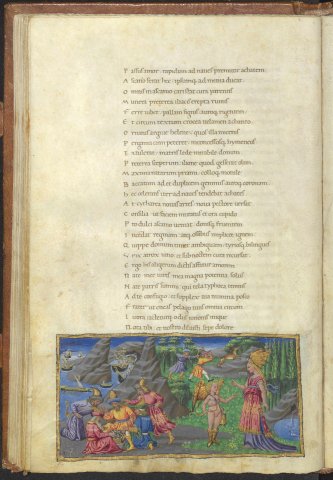 P assus amor. rapidum ad naues premittit achatem
A scanio ferat hec: ipsumq; ad menia ducat
O mnis in ascanio cari stat cura parentis
M unera preterea iliacis erepta ruinis
F erre iubet: pallam signis auroq; rigentem
E t circum textum croceo uelamen achanto
O rnatus argiue helene: quos illa micenis
P ergama cum peteret: inconcessosq; hymeneos
E xtulerat: matris lede mirabile donum
P reterea sceptrum: ilione quod gesserat olim
M axima natarum priami: colloq; monile
B acatum: et duplicem gemmis auroq; coronam
H ec celerans iter ad naues tendebat achates
A t cytharea nouas artes: noua pectore uersat
C onsilia: ut faciem mutatus et ora cupido
P ro dulci ascanio ueniat: donisq; furentem
I ncendat reginam: atq; ossibus implicet ignem
Q uippe domum timet ambiguam: tyriosq; bilingues
V rit atrox iuno: et sub noctem cura recursat
E rgo his aligerum dictis affatur amorem
N ate mee uires: mea magna potentia solus
N ate patris summi: qui tela typhoea temnis
A d te confugio: et supplex tua numina posco
F rater ut eneas pelago tuus omnia circum
L itora iactetur: odiis iunonis inique
N ota tibi: et nostro doluisti sepe dolore